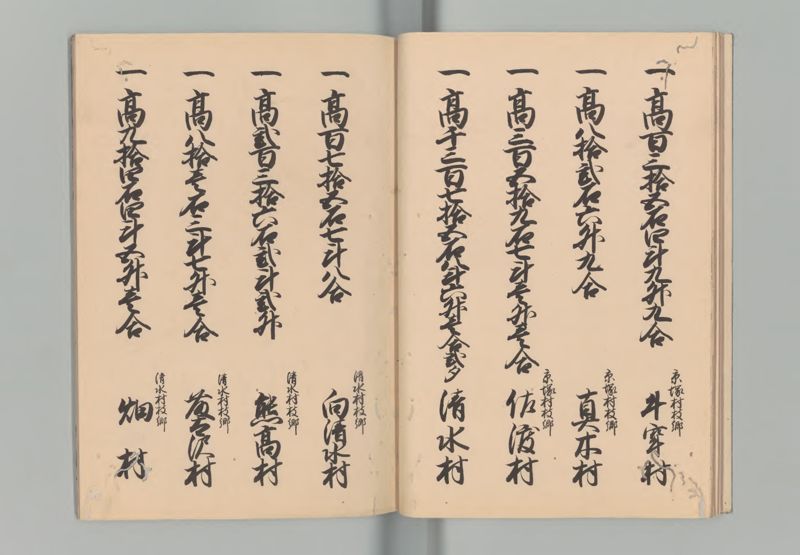 一高百三拾五石四斗九升九合
京塚村枝郷
斗窄村
一高八拾弐石六升九合
京塚村枝郷
真木村
一高三百五拾九石七斗壱升壱合
京塚村枝郷
佐渡村
一高千三百七拾五石八斗六升七合弐夕
清水村
一高百七拾五石七斗八合
清水村枝郷
向清水村
一高弐百三拾六石弐斗弐升
清水村枝郷
熊高村
一高八拾壱石三斗七升壱合
清水村枝郷
村
一高九拾四石四斗五升壱合
清水村枝郷
畑村